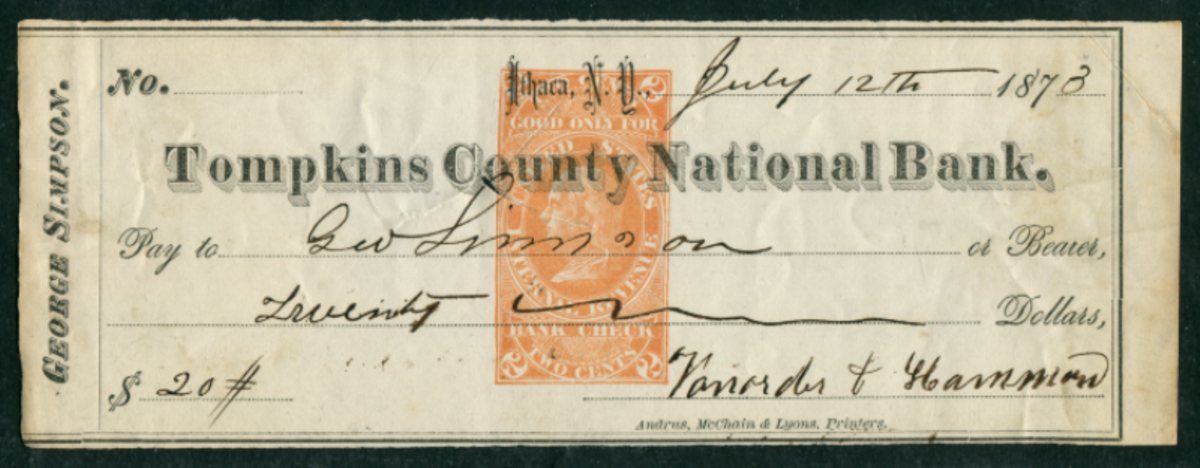 GEORGE SIMPSON.
No.
Ithaca, N. Y., July 12th 1873
2 2
GOOD ONLY FOR
Tompkins County National Bank.
UNITED STATES
INTERNAL REVENUE
Pay to Geo Simpson or Bearer,
Twenty Dollars,
BANK CHECK
2 TWO CENTS 2
$ 20 #
Vanorder & Hammond
Andrus, McChain & Lyons, Printers,